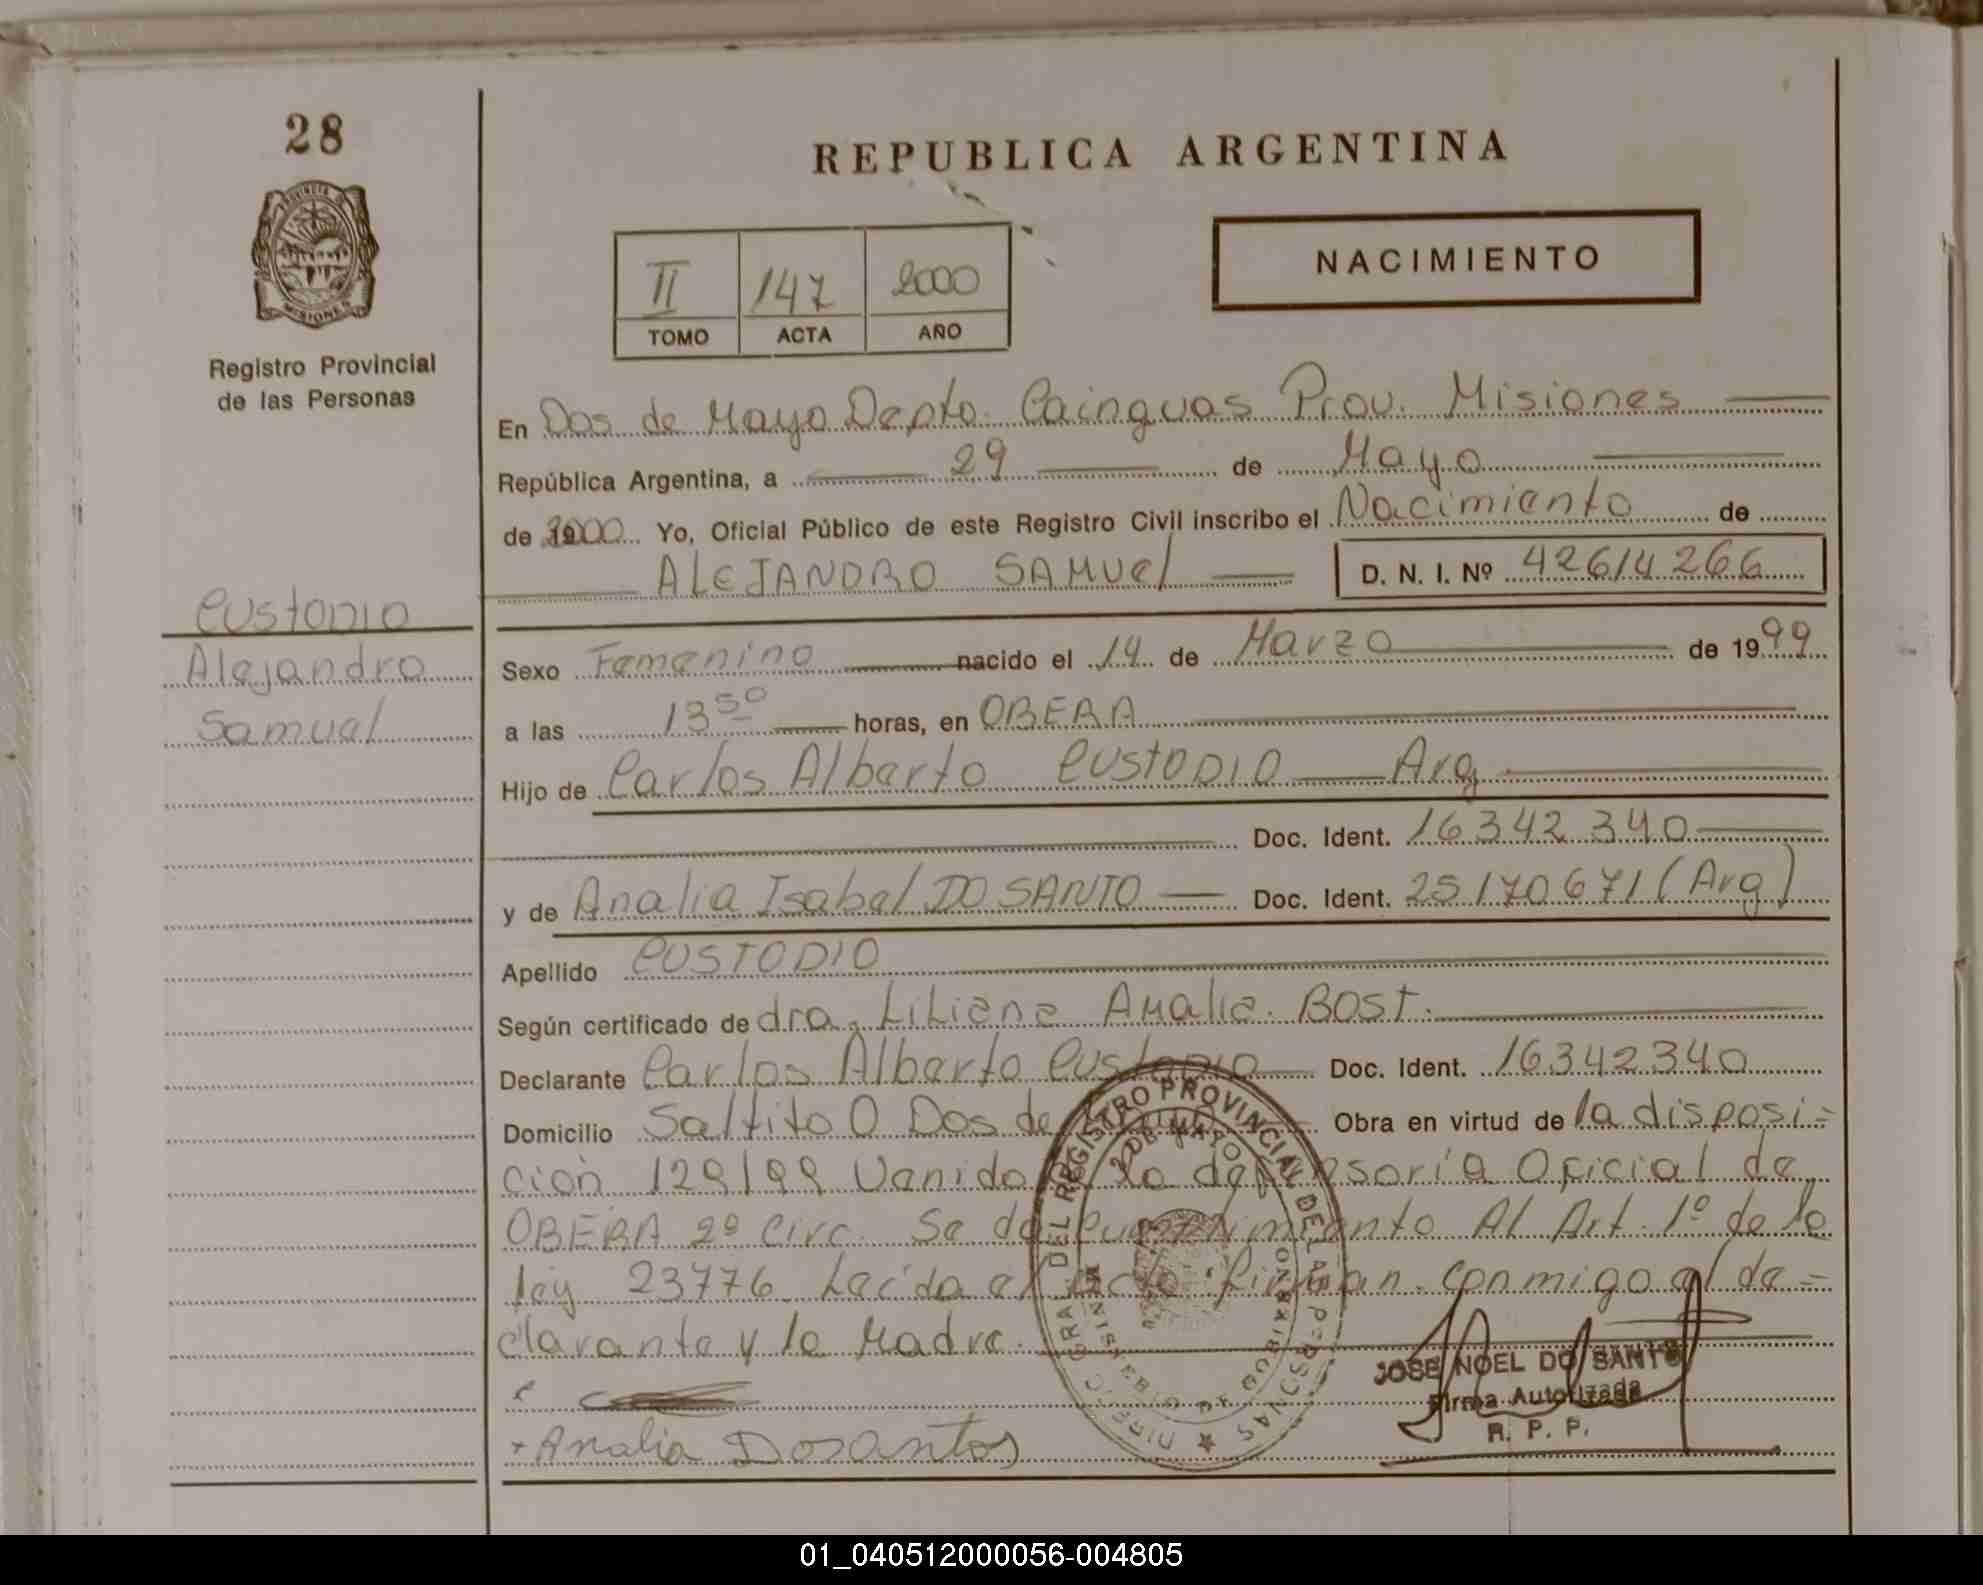 28
REPUBLICA ARGENTINA
PROVINCIA
MISIONES
Registro Provincial
de las Personas
II 147 2000
TOMO ACTA AÑO
NACIMIENTO
En Dos de Mayo Depto. Cainguas Prov. Misiones
República Argentina, a 29 de Mayo
de 2000 Yo, Oficial Público de este Registro Civil inscribo el Nacimiento de
ALEJANDRO SAMUEL D. N. I. Nº 42614266
CUSTODIO
Alejandro
Samuel
Sexo Femenino nacido el 14 de Marzo de 1999
a las 13 50 horas, en OBERA
Hijo de Carlos Alberto CUSTODIO Arg
Doc. Ident. 16342340
y de Analia Isabel DO SANTO Doc. Ident. 25170671 (Arg)
Apellido CUSTODIO
Según certificado de dra. Liliana Amalia. BOST.
Declarante Carlos Alberto Custodio Doc. Ident. 16342340
Domicilio Saltito 0 Dos de Mayo Obra en virtud de la disposi=
ción 129/99 Venida de la defensoría Oficial de
OBERA 2º Circ. Se da cumplimiento Al Art. 1º de la
ley 23776 Leída el acta firman conmigo el de=
clarante y la Madre.
+ Analia Dosantos
DEL REGISTRO PROVINCIAL DE LAS PERSONAS
JOSE NOEL DO SANTO
Firma Autorizada
R. P. P.
01_040512000056-004805